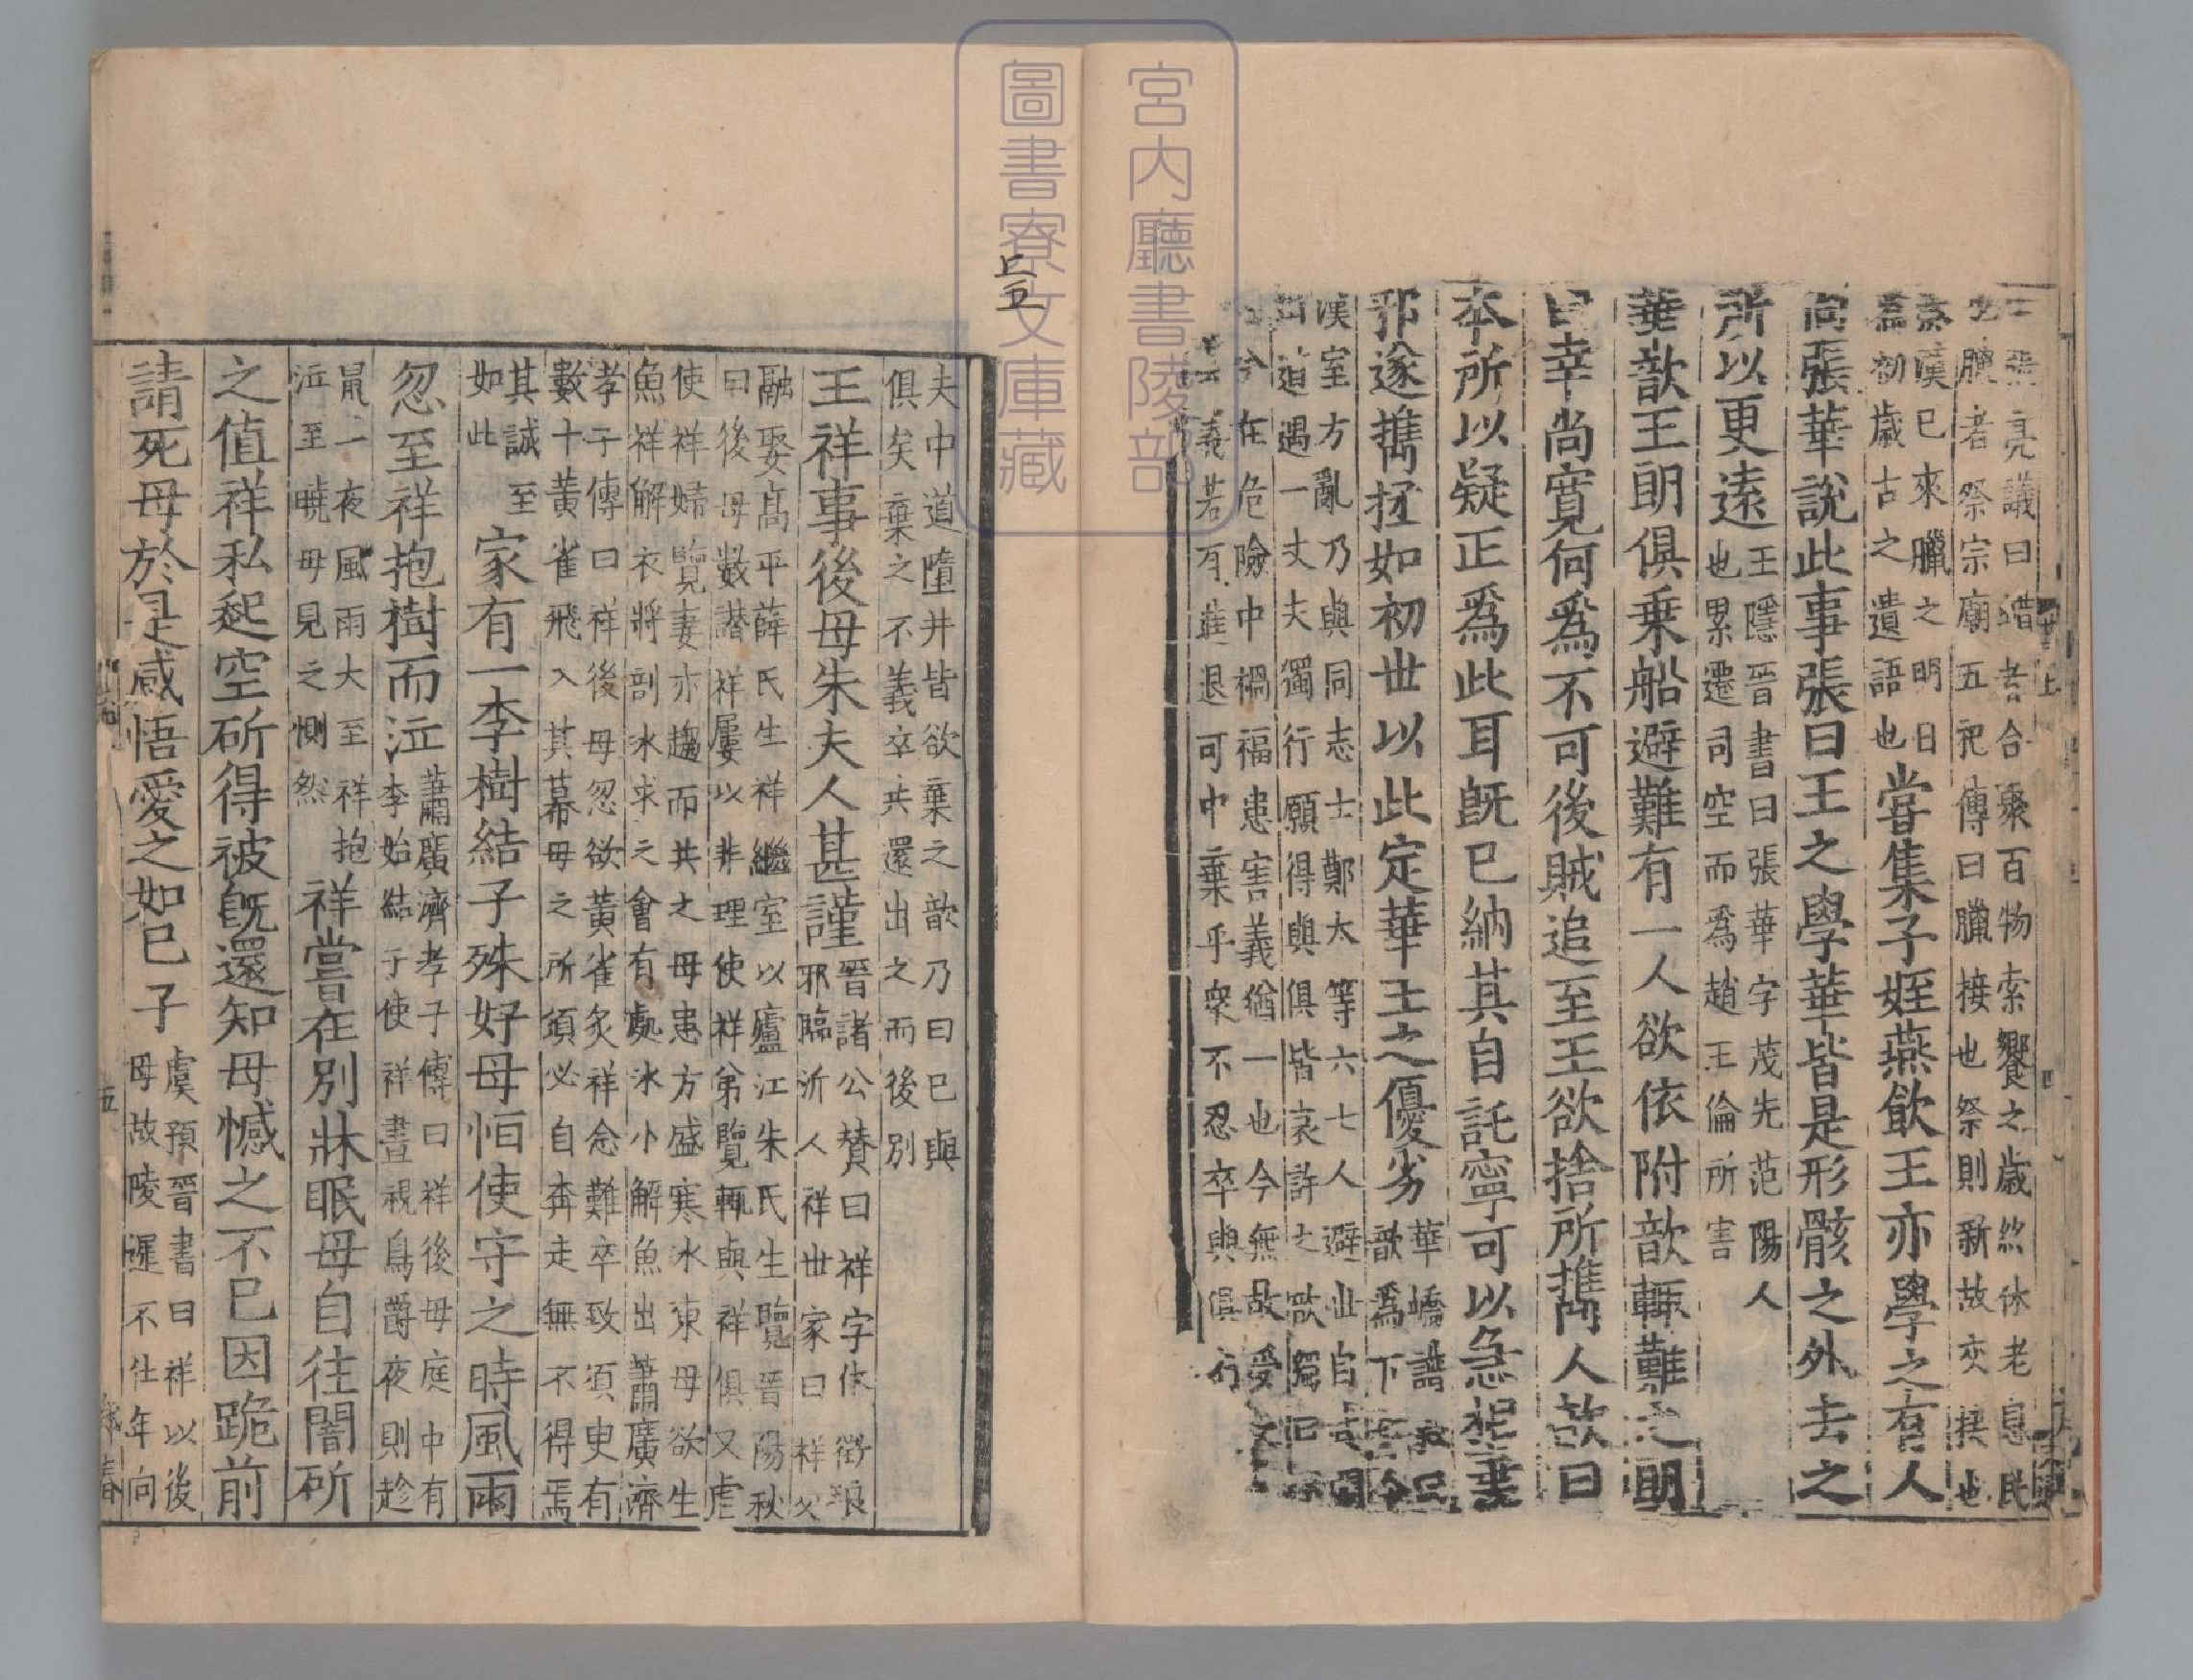 張亮議曰蜡者合聚百物索饗之歳終休老息民
臘者祭宗廟五祀傳曰臘接也祭則新故交接也
漢已來臘之明日
爲初歳古之遺語也
嘗集子姪燕飲王亦學之有人
向張華說此事張曰王之學華皆是形骸之外去之
所以更遠
王隱晉書曰張華字茂先范陽人
也累遷司空而爲趙王倫所害
華歆王朗俱乗船避難有一人欲依附歆輒難之朗
曰幸尚寛何爲不可後賊追至王欲捨所攜人歆曰
本所以疑正爲此耳旣已納其自託寧可以急相棄
邪遂攜拯如初世以此定華王之優劣
華嶠譜敘曰
歆爲下邽令
漢室方亂乃與同志士鄭太等六七人避世自武關
出道遇一丈夫獨行願得與俱皆哀許之歆獨曰不
可今在危險中禍福患害義猶一也今無故受之不
知其義若有進退可中棄乎衆不忍卒與俱行
夫中道墮井皆欲棄之歆乃曰已與
俱矣棄之不義卒共還出之而後別
王祥事後母朱夫人甚謹
晉諸公賛曰祥字休徴琅
邪臨沂人祥世家曰祥父
融娶高平薛氏生祥繼室以廬江朱氏生覽晉陽秋
曰後母數譖祥屢以非理使祥弟覽輒與祥俱又虐
使祥婦覽妻亦趨而共之母患方盛寒冰凍母欲生
魚祥解衣將剖冰求之會有處冰小解魚出蕭廣濟
孝子傳曰祥後母忽欲黃雀炙祥念難卒致須臾有
數十黃雀飛入其幕母之所須必自奔走無不得焉
其誠至
如此
家有一李樹結子殊好母恒使守之時風雨
忽至祥抱樹而泣
蕭廣濟孝子傳曰祥後母庭中有
李始結子使祥晝視鳥爵夜則趁
鼠一夜風雨大至祥抱
泣至曉母見之惻然
祥嘗在別牀眠母自往闇斫
之值祥私起空斫得被旣還知母憾之不已因跪前
請死母於是感悟愛之如已子
虞預晉書曰祥以後
母故陵遲不仕年向
五
上五
宮内廳書陵部
圖書寮文庫藏